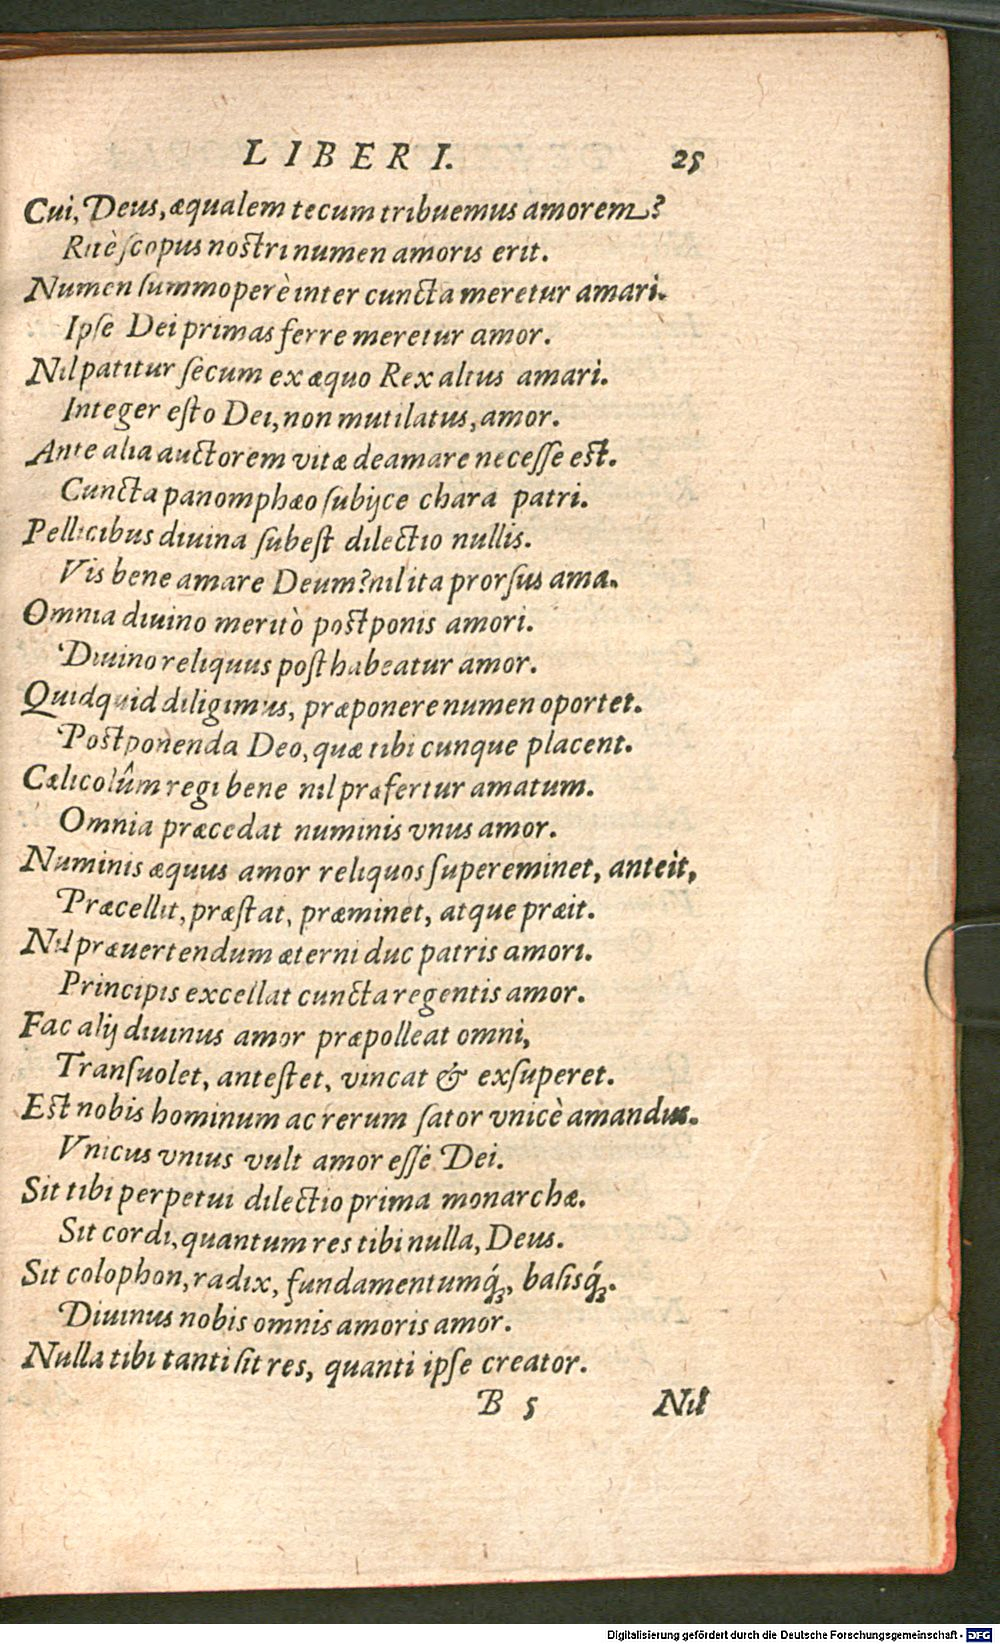 LIBER I. 25
Cui, Deus, æqualem tecum tribuemus amorem?
Ritè scopus nostri numen amoris erit.
Numen summoperè inter cuncta meretur amari.
Ipse Dei primas ferre meretur amor.
Nil patitur secum ex æquo Rex altus amari.
Integer esto Dei, non mutilatus, amor.
Ante alia auctorem vitæ deamare necesse est.
Cuncta panomphæo subijce chara patri.
Pellicibus diuina subest dilectio nullis.
Vis bene amare Deum? nil ita prorsus ama.
Omnia diuino meritò postponis amori.
Diuino reliquus posthabeatur amor.
Quidquid diligimus, præponere numen oportet.
Postponenda Deo, quæ tibi cunque placent.
Cælicolûm regi bene nil præfertur amatum.
Omnia præcedat numinis vnus amor.
Numinis æquus amor reliquos supereminet, anteit,
Præcellit, præstat, præminet, atque præit.
Nil præuertendum æterni duc patris amori.
Principis excellat cuncta regentis amor.
Fac alij diuinus amor præpolleat omni,
Transuolet, antestet, vincat & exsuperet.
Est nobis hominum ac rerum sator vnicè amandus.
Vnicus vnius vult amor esse Dei.
Sit tibi perpetui dilectio prima monarchæ.
Sit cordi, quantum res tibi nulla, Deus.
Sit colophon, radix, fundamentumq́;, basisq́;.
Diuinus nobis omnis amoris amor.
Nulla tibi tanti sit res, quanti ipse creator.
B 5 Nil
Digitalisierung gefördert durch die Deutsche Forschungsgemeinschaft - DFG